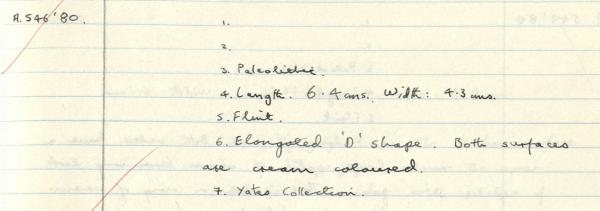 A.546'80. 1.
2.
3. Paleolithic.
4. Length. 6.4 cms. Width: 4.3 cms.
5. Flint.
6. Elongated 'D' shape. Both surfaces
are cream coloured.
7. Yates Collection.